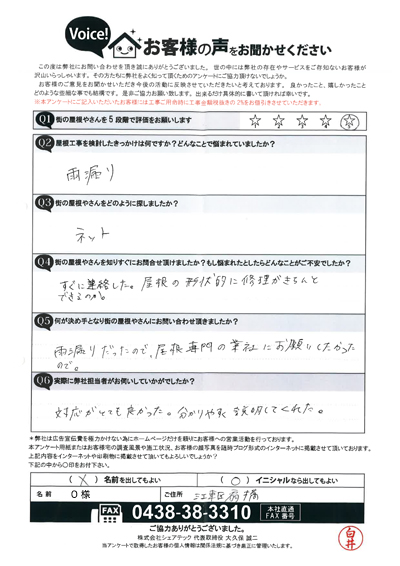 Voice!
お客様の声をお聞かせください
この度は弊社にお問い合わせを頂き誠にありがとうございました。世の中には弊社の存在やサービスをご存知ないお客様が
沢山いらっしゃいます。その方たちに弊社をよく知って頂くためのアンケートにご協力頂けないでしょうか。
お客様のご意見をお聞かせいただき今後の活動に反映させていただきたいと考えております。良かったこと、嬉しかったこと
どのような些細な事でも結構です。是非ご協力お願い致します。出来るだけ具体的に書いて頂ければ幸いです。
※本アンケートにご記入いただいたお客様には工事ご用命時に工事金額税抜きの2%をお値引きさせていただきます。
Q1 街の屋根やさんを5段階で評価をお願いします ☆ ☆ ☆ ☆ ☆
Q2 屋根工事を検討したきっかけは何ですか?どんなことで悩まれていましたか?
雨漏り
Q3 街の屋根やさんをどのように探しましたか?
ネット
Q4 街の屋根やさんを知りすぐにお問合せ頂けましたか?もし悩まれたとしたらどんなことがご不安でしたか?
すぐに連絡した。屋根の形状的に修理がきちんと
できるのか。
Q5 何が決め手となり街の屋根やさんにお問い合わせ頂きましたか?
雨漏りだったので、屋根専門の業社にお願いしたかった
ので。
Q6 実際に弊社担当者がお伺いしていかがでしたか?
対応がとても良かった。分かりやすく説明してくれた。
*弊社は広告宣伝費を極力かけない為にホームページだけを頼りにお客様への営業活動を行っております。
本アンケート用紙またはお客様宅の調査風景や施工状況、お客様の顔写真を随時ブログ形式のインターネットに掲載させて頂いております。
上記内容をインターネットや印刷物に掲載させて頂いてもよろしいでしょうか?
下記の中から〇印をお付下さい。
( X ) 名前を出してもよい ( 〇 ) イニシャルなら出してもよい
名前 O様 ご住所 江東区扇橋
FAX 0438-38-3310 本社直通 FAX番号
ご協力ありがとうございました。
株式会社シェアテック 代表取締役 大久保 誠二
当アンケートで取得したお客様の個人情報は関係法規に基づき厳正に管理いたします。
白井